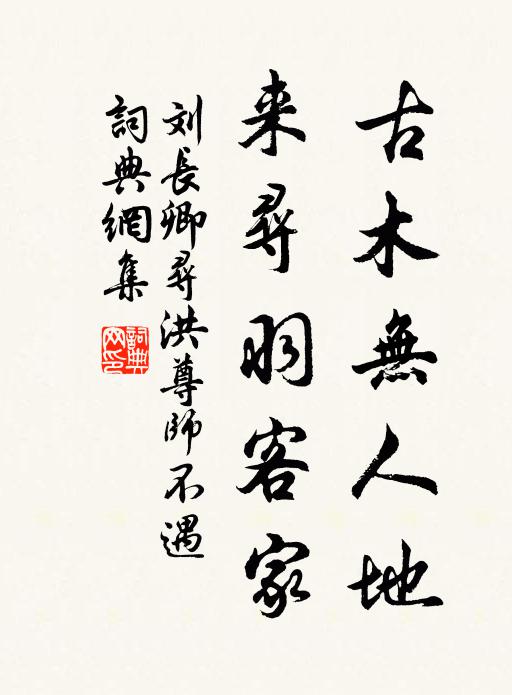 古木無人地
来尋羽客家
刘長卿尋洪尊師不遇
詞典網集
詞典
网印